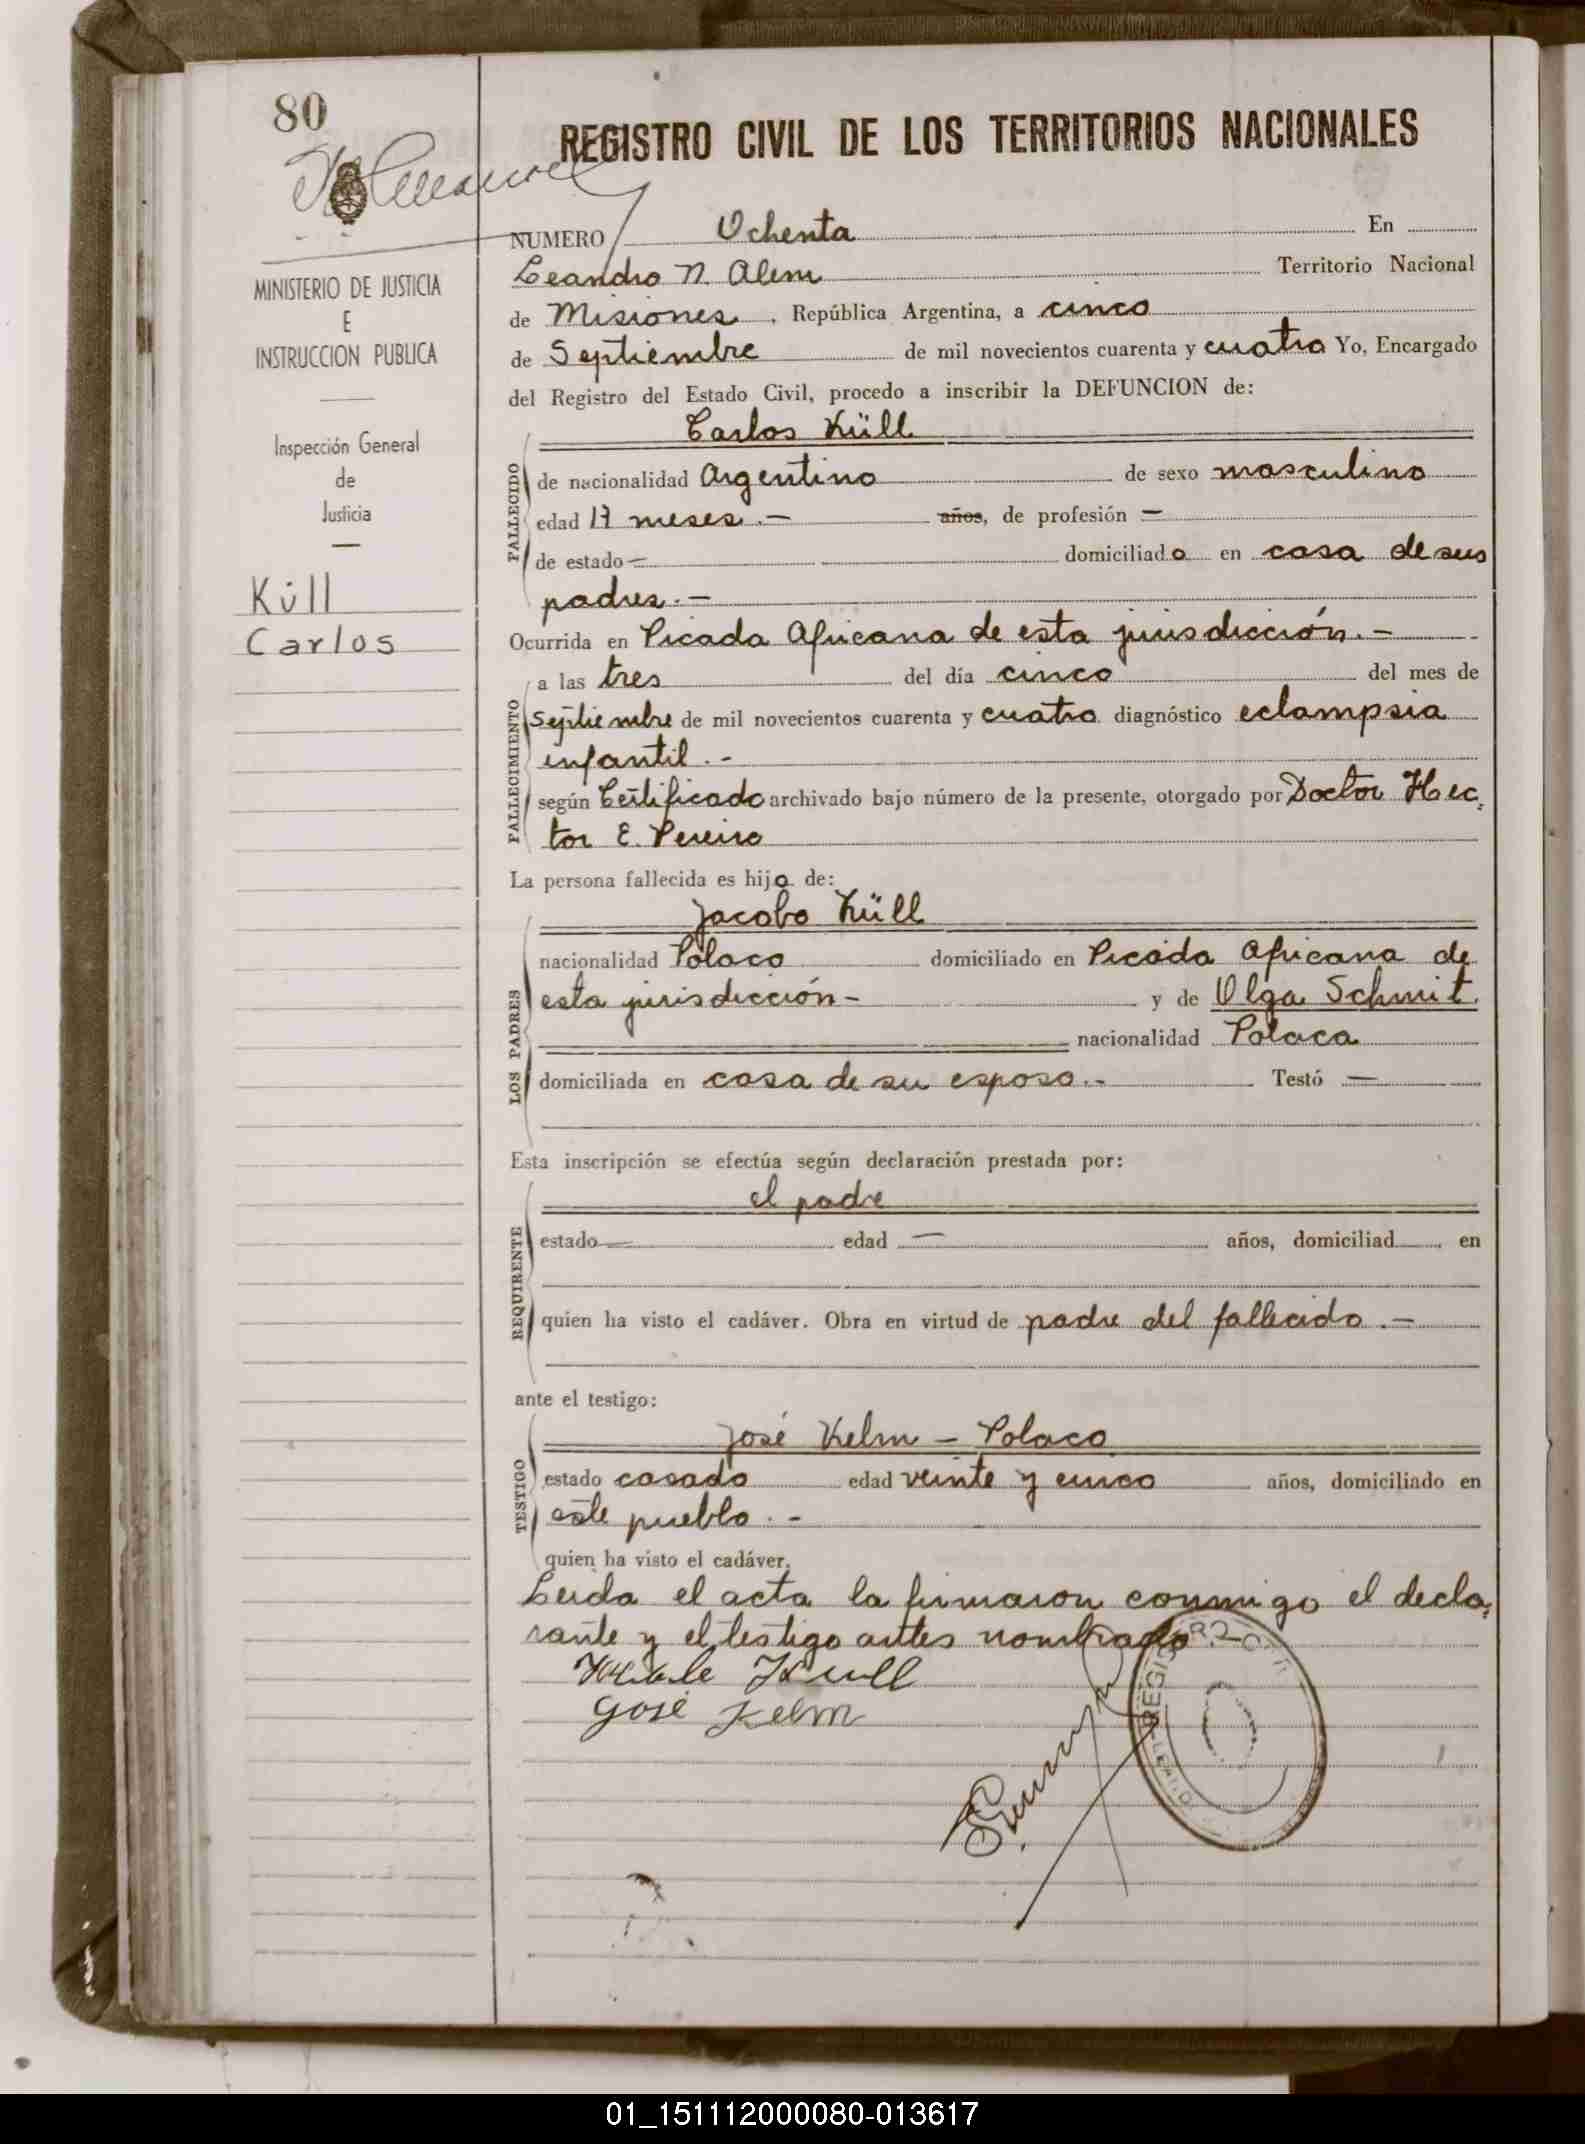 80
REGISTRO CIVIL DE LOS TERRITORIOS NACIONALES
MINISTERIO DE JUSTICIA
E
INSTRUCCION PUBLICA
Inspección General
de
Justicia
Küll
Carlos
NUMERO Ochenta En
Leandro N. Alem Territorio Nacional
de Misiones, República Argentina, a cinco
de Septiembre de mil novecientos cuarenta y cuatro Yo, Encargado
del Registro del Estado Civil, procedo a inscribir la DEFUNCION de:
Carlos Küll
FALLECIDO
de nacionalidad Argentino de sexo masculino
edad 17 meses.- años, de profesión —
de estado — domiciliado en casa de sus
padres.-
Ocurrida en Picada Africana de esta jurisdicción.-
FALLECIMIENTO
a las tres del día cinco del mes de
Septiembre de mil novecientos cuarenta y cuatro diagnóstico eclampsia
infantil.-
según Certificado archivado bajo número de la presente, otorgado por Doctor Hec-
tor E. Pereiro
La persona fallecida es hijo de:
Jacobo Küll
LOS PADRES
nacionalidad Polaco domiciliado en Picada Africana de
esta jurisdicción - y de Olga Schmit
nacionalidad Polaca
domiciliada en casa de su esposo.- Testó —
Esta inscripción se efectúa según declaración prestada por:
el padre
REQUIRENTE
estado — edad — años, domiciliad en
quien ha visto el cadáver. Obra en virtud de padre del fallecido.-
ante el testigo:
José Kelm - Polaco
TESTIGO
estado casado edad veinte y cinco años, domiciliado en
este pueblo.-
quien ha visto el cadáver.
Leida el acta la firmaron conmigo el decla-
rante y el testigo antes nombrado.-
Küll
José Kelm
REGISTRO CIVIL
01_151112000080-013617